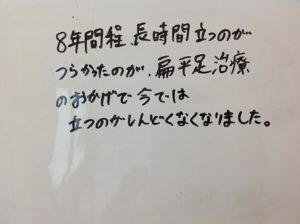 8年間程、長時間立つのが
つらかったのが、扁平足治療
のおかげで今では
立つのがしんどくなくなりました。